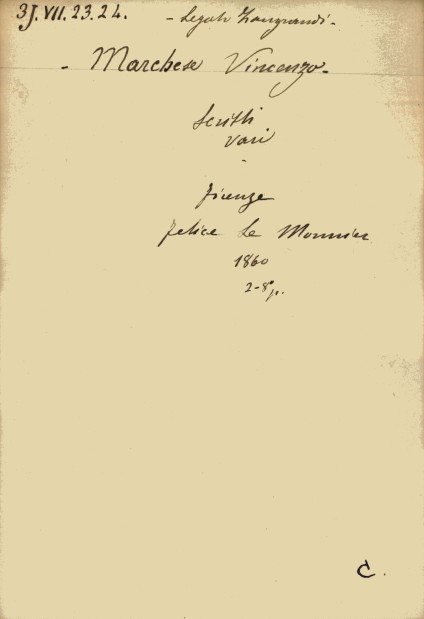 3J.VII.23.24. - Legato Zangrandi -
- Marchese Vincenzo -
Scritti
vari
-
Firenze
Felice Le Monnier
1860
2-8°p.
C.